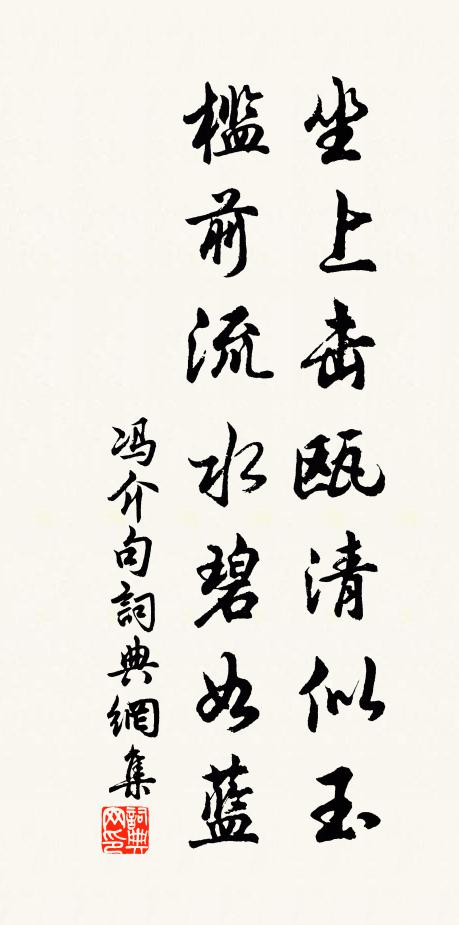 坐上击瓯清似玉
槛前流水碧如蓝
冯介句詞典網集
詞典网印